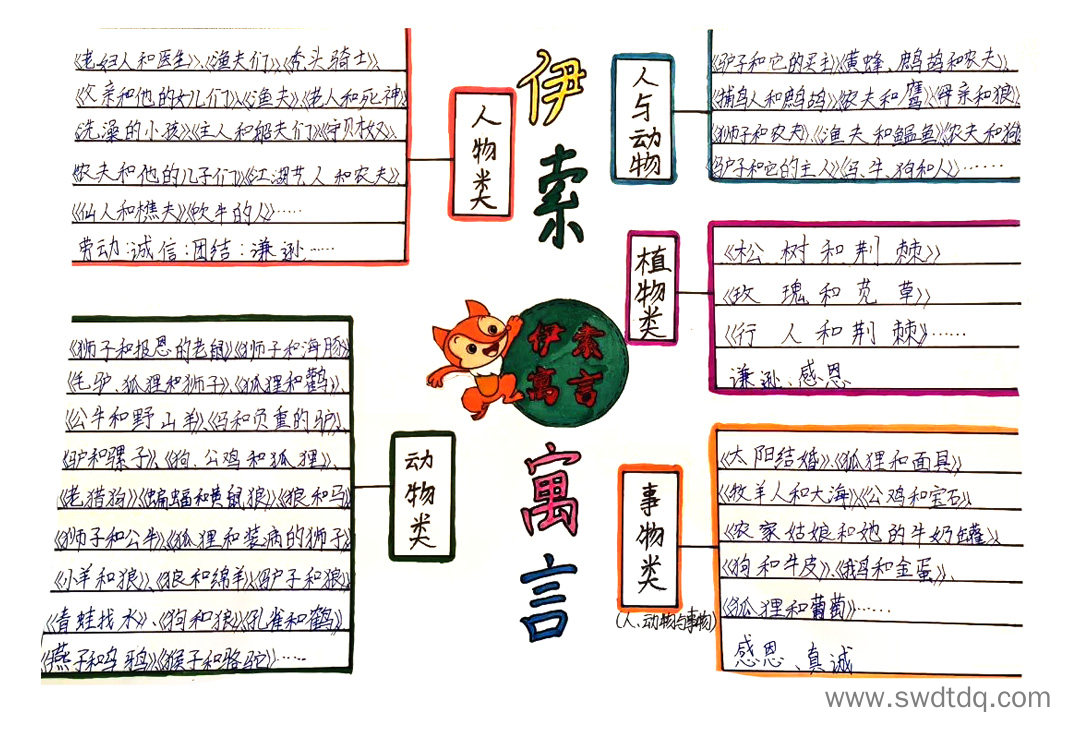 伊索寓言
伊索
寓言
人物类
《老妇人和医生》、《渔夫们》、《秃头骑士》、
《父亲和他的女儿们》、《渔夫》、《老人和死神》
洗澡的小孩》、《主人和船夫们》
农夫和他的儿子们》《江湖艺人和农夫》
《仙人和樵夫》《吹牛的人》……
劳动:诚信:团结:谦逊……
动物类
《狮子和报恩的老鼠》《狮子和海豚》
驴、狐狸和狮子》、《狐狸和鹳》、
《公牛和野山羊》、《马和负重的驴》、
《驴和骡子》、《狗、公鸡和狐狸》、
《老猎狗》《蝙蝠和黄鼠狼》《狼和马》
《狮子和公牛》《狐狸和装病的狮子》
《小羊和狼》、《狼和绵羊》《驴子和狼》
《青蛙找水》、《狗和狼》《孔雀和鹤》
《燕子和乌鸦》《猴子和骆驼》……
人与动物
《驴子和它的买主》《黄蜂、鹧鸪和农夫》、
《捕鸟人和鹧鸪》《农夫和鹰》《母亲和狼》
《狮子和农夫》、《渔夫和鳁鱼》《农夫和狗》
《驴子和它的主人》《马、牛、狗和人》……
植物类
《松树和荆棘》
《玫瑰和苋草》
《行人和荆棘》……
谦逊、感恩
事物类
(人、动物与事物)
《太阳结婚》、《狐狸和面具》
《牧羊人和大海》《公鸡和宝石》、
《农家姑娘和她的牛奶罐》、
《狗和牛皮》、《鹅和金蛋》、
《狐狸和葡萄》……
感恩、真诚
www.swdtdq.com